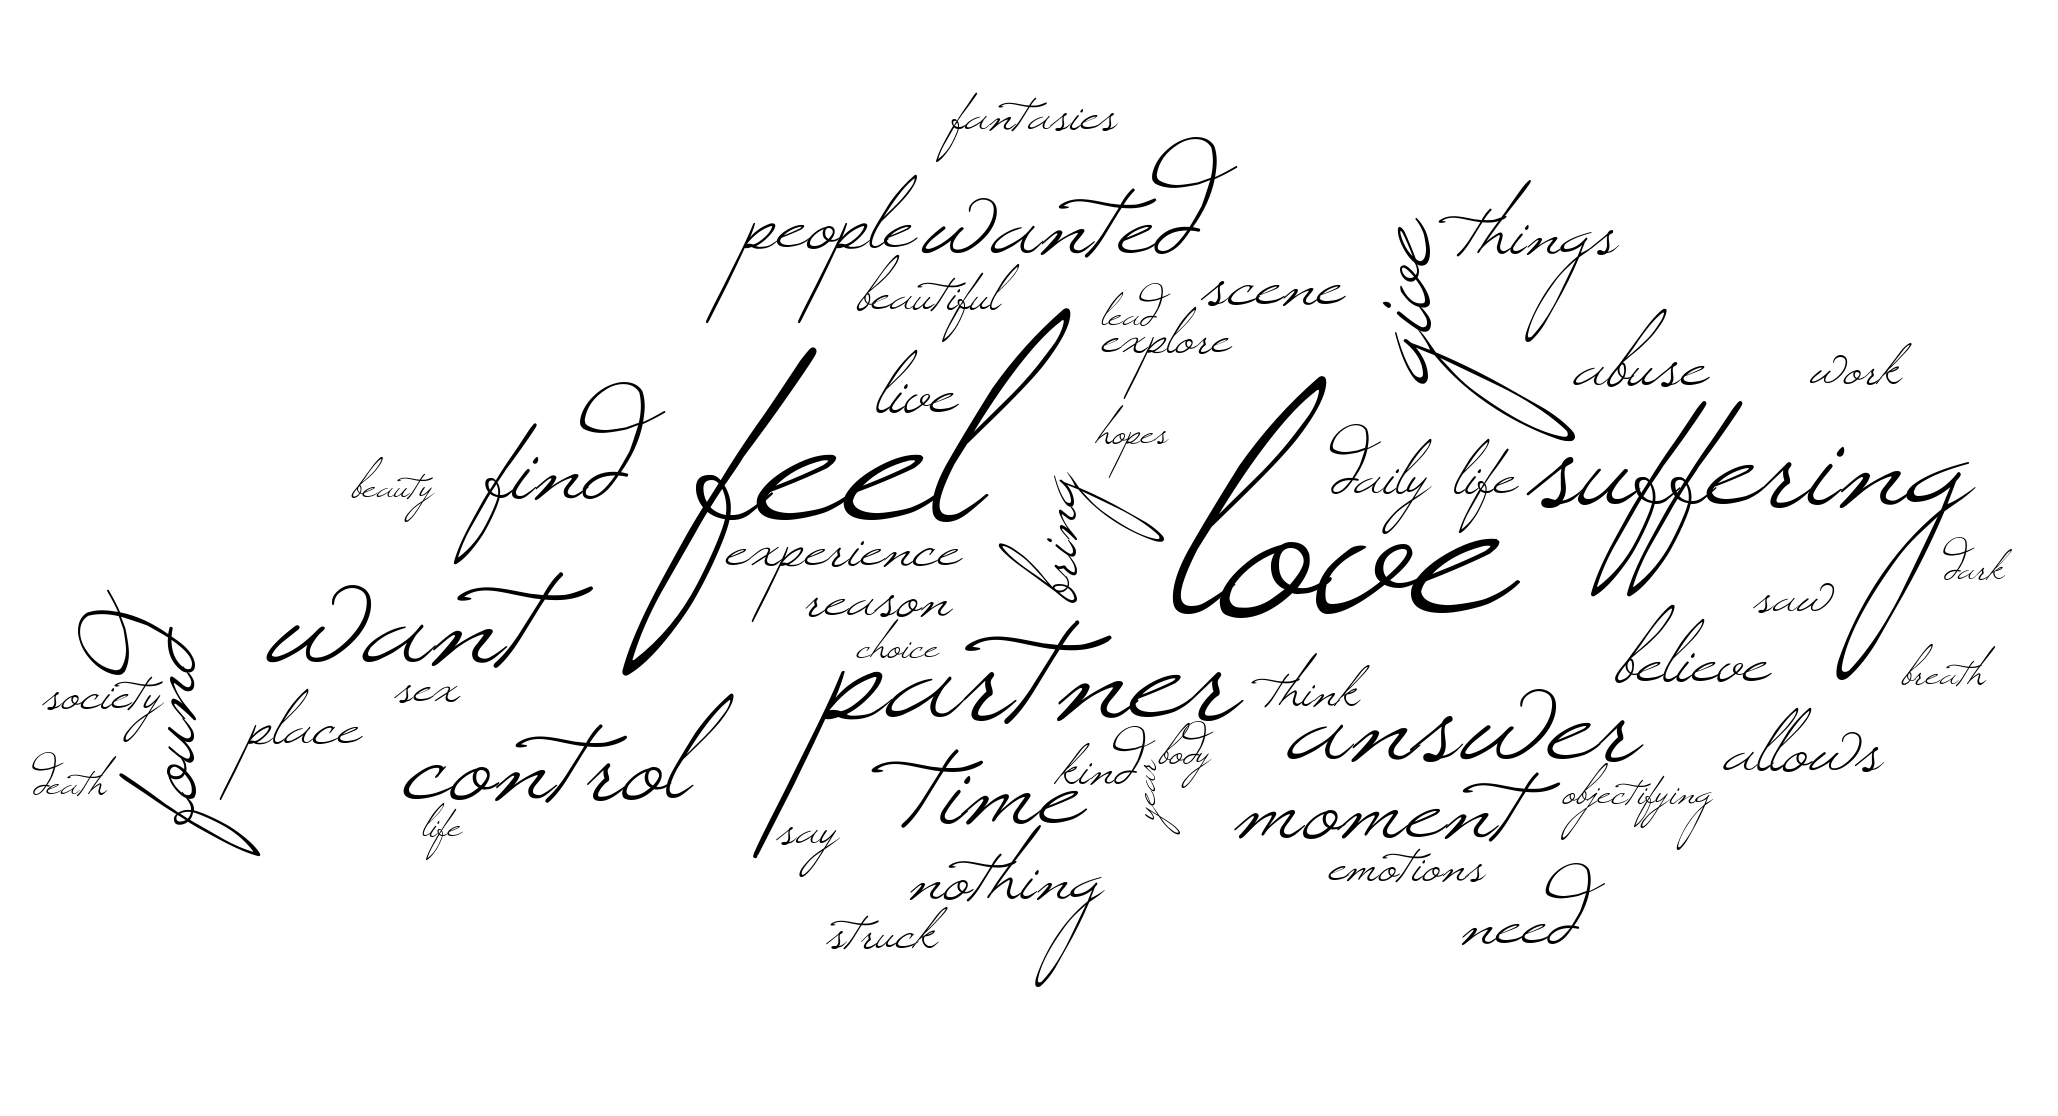 fantasies
people wanted
give
things
beautiful
lead
scene
explore
live
abuse
work
feel
find
beauty
hopes
love
daily life
suffering
bring
experience
dark
reason
saw
want
choice
found
partner
believe
breath
society
sex
think
place
answer
allows
control
death
time
kind
body
year
moment
objectifying
life
say
nothing
emotions
struck
need